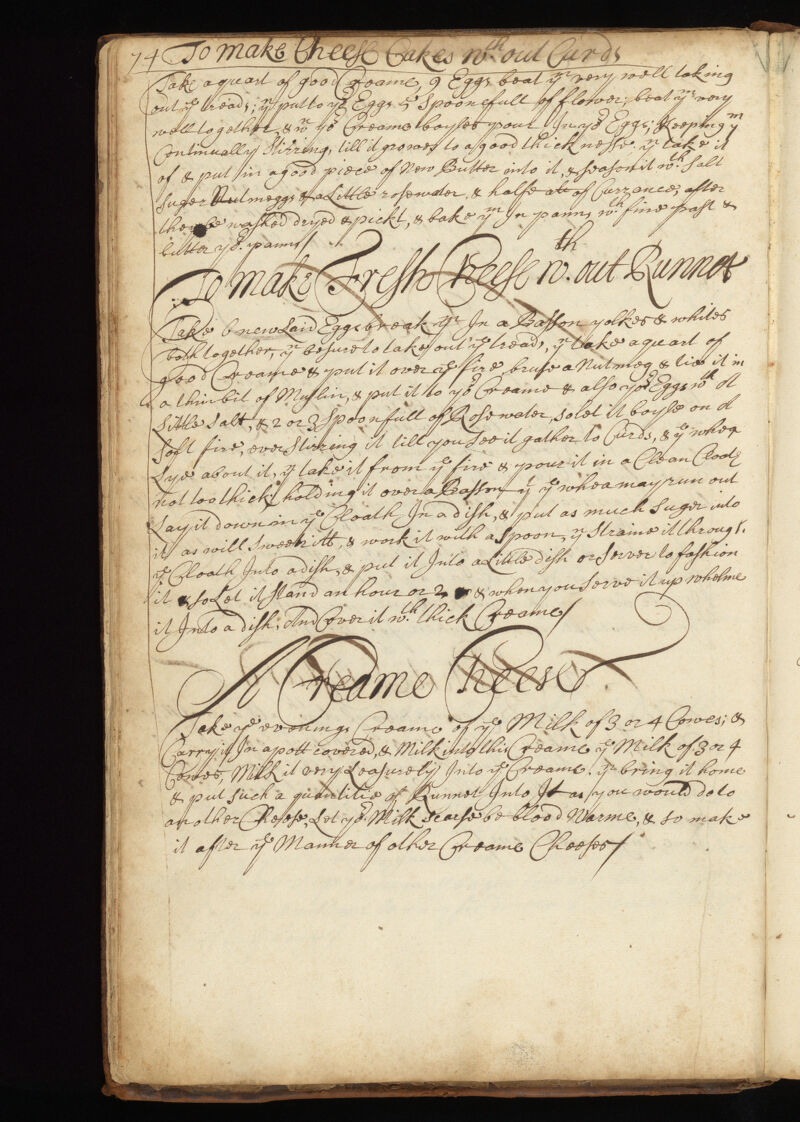 74 To make Cheese Cakes wth out Curds
Take a quart of good Creame, 9 Eggs beat ym very well taking
out ye treads; yn put to ye Eggs 4 Spoonefull of flower; beat ym very
well together, & wn ye Creame boyles pour In ye Eggs; keeping ym
Continually Stirring, till it growes to a good thicknesse, yn take it
of & put in a good piece of New Butter into it, & season it wth Salt
Suger Nutmegg & a Little rosewater, & halfe of Currance, after
they be washed dryed & pickt, & bake ym In panns wth fine past &
butter ye panns/
To make Fresh Cheese wth out Runnet
Take 6 new Laid Eggs break ym In a Basson yolkes & whites
both together, yn be sure to take out ye treads, yn take a quart of
good Creame & put it over ye fire, bruse a Nutmeg & tie it in
a thin bit of Muslin, & put it to ye Creame & also ye Eggs wth A
Little Salt, & 2 or 3 Spoonfull of Rosewater, so let it boyle on A
Soft fire, ever Stirring it till you See it gather to Curds, & ye whea
Lye about it, yn take it from ye fire & pour it in a Clean Cloath
not too thick, holding it over a Basson yt ye whea may run out
Lay it down in ye Cloath In a dish, & put as much Suger into
it as will Sweet itt, & work it with a Spoon, yn Straine it throug
ye Cloath Into a dish, & put it Into a Little dish or Server to fashion
it & so Let it Stand an hour or 2 & when you Serve it up whelme
it Into a dish; And Cover it wth thick Creame/
A Creame Cheese
Take ye evenings Creame of ye Milk of 3 or 4 Cowes; &
Carry it In a pott covered, & Milk into this Creame ye Milk of 3 or 4
Cowes, Milk it very Leasurely Into ye Creame: yn bring it home
& put Such a quantitie of Runnet Into It as you would do to
another Cheese, Let ye Milk scarse be blood Warme, & so make
it after ye Manner of other Creame Cheeses/